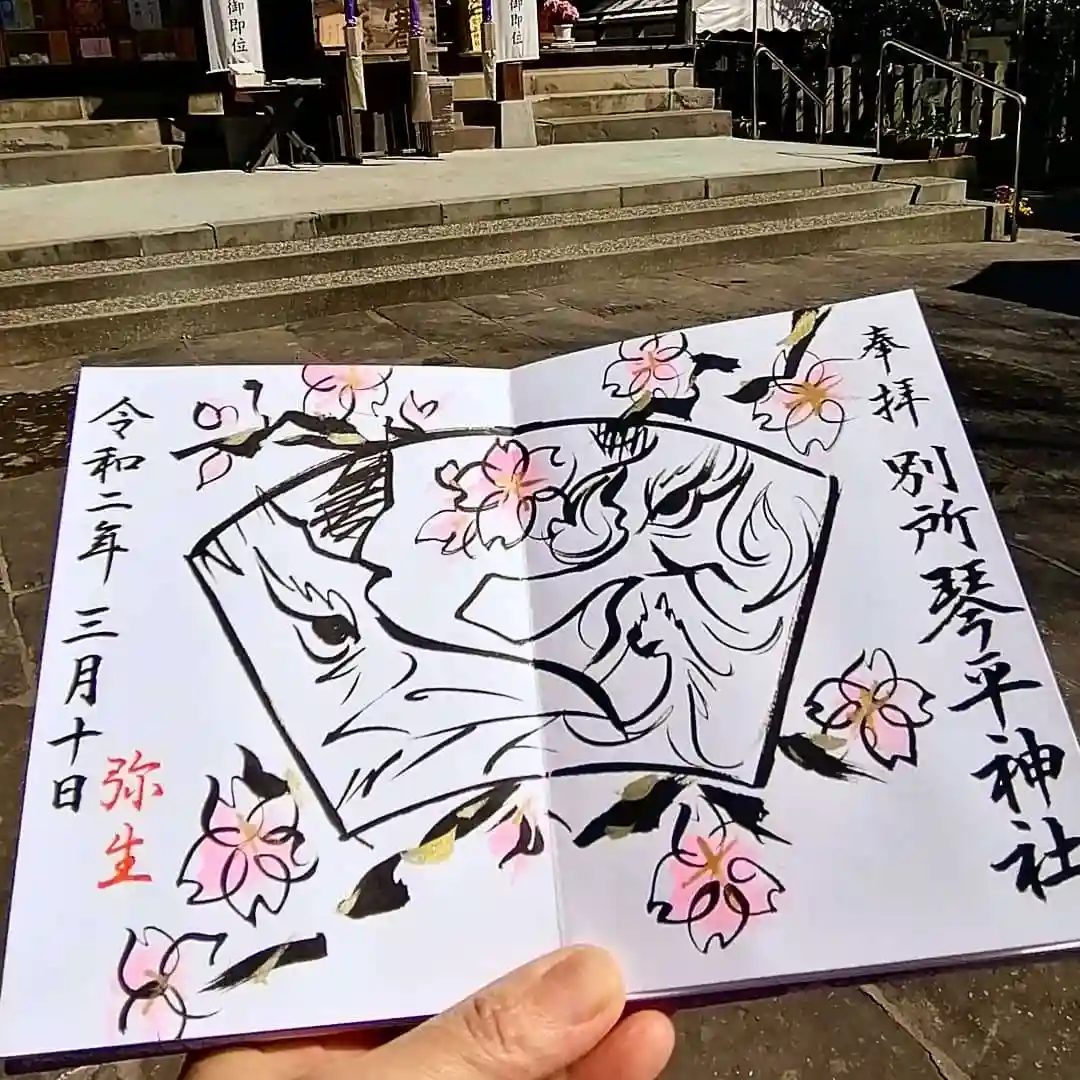 御即位
御即位
奉拝
別所琴平神社
令和二年 三月十日
弥生